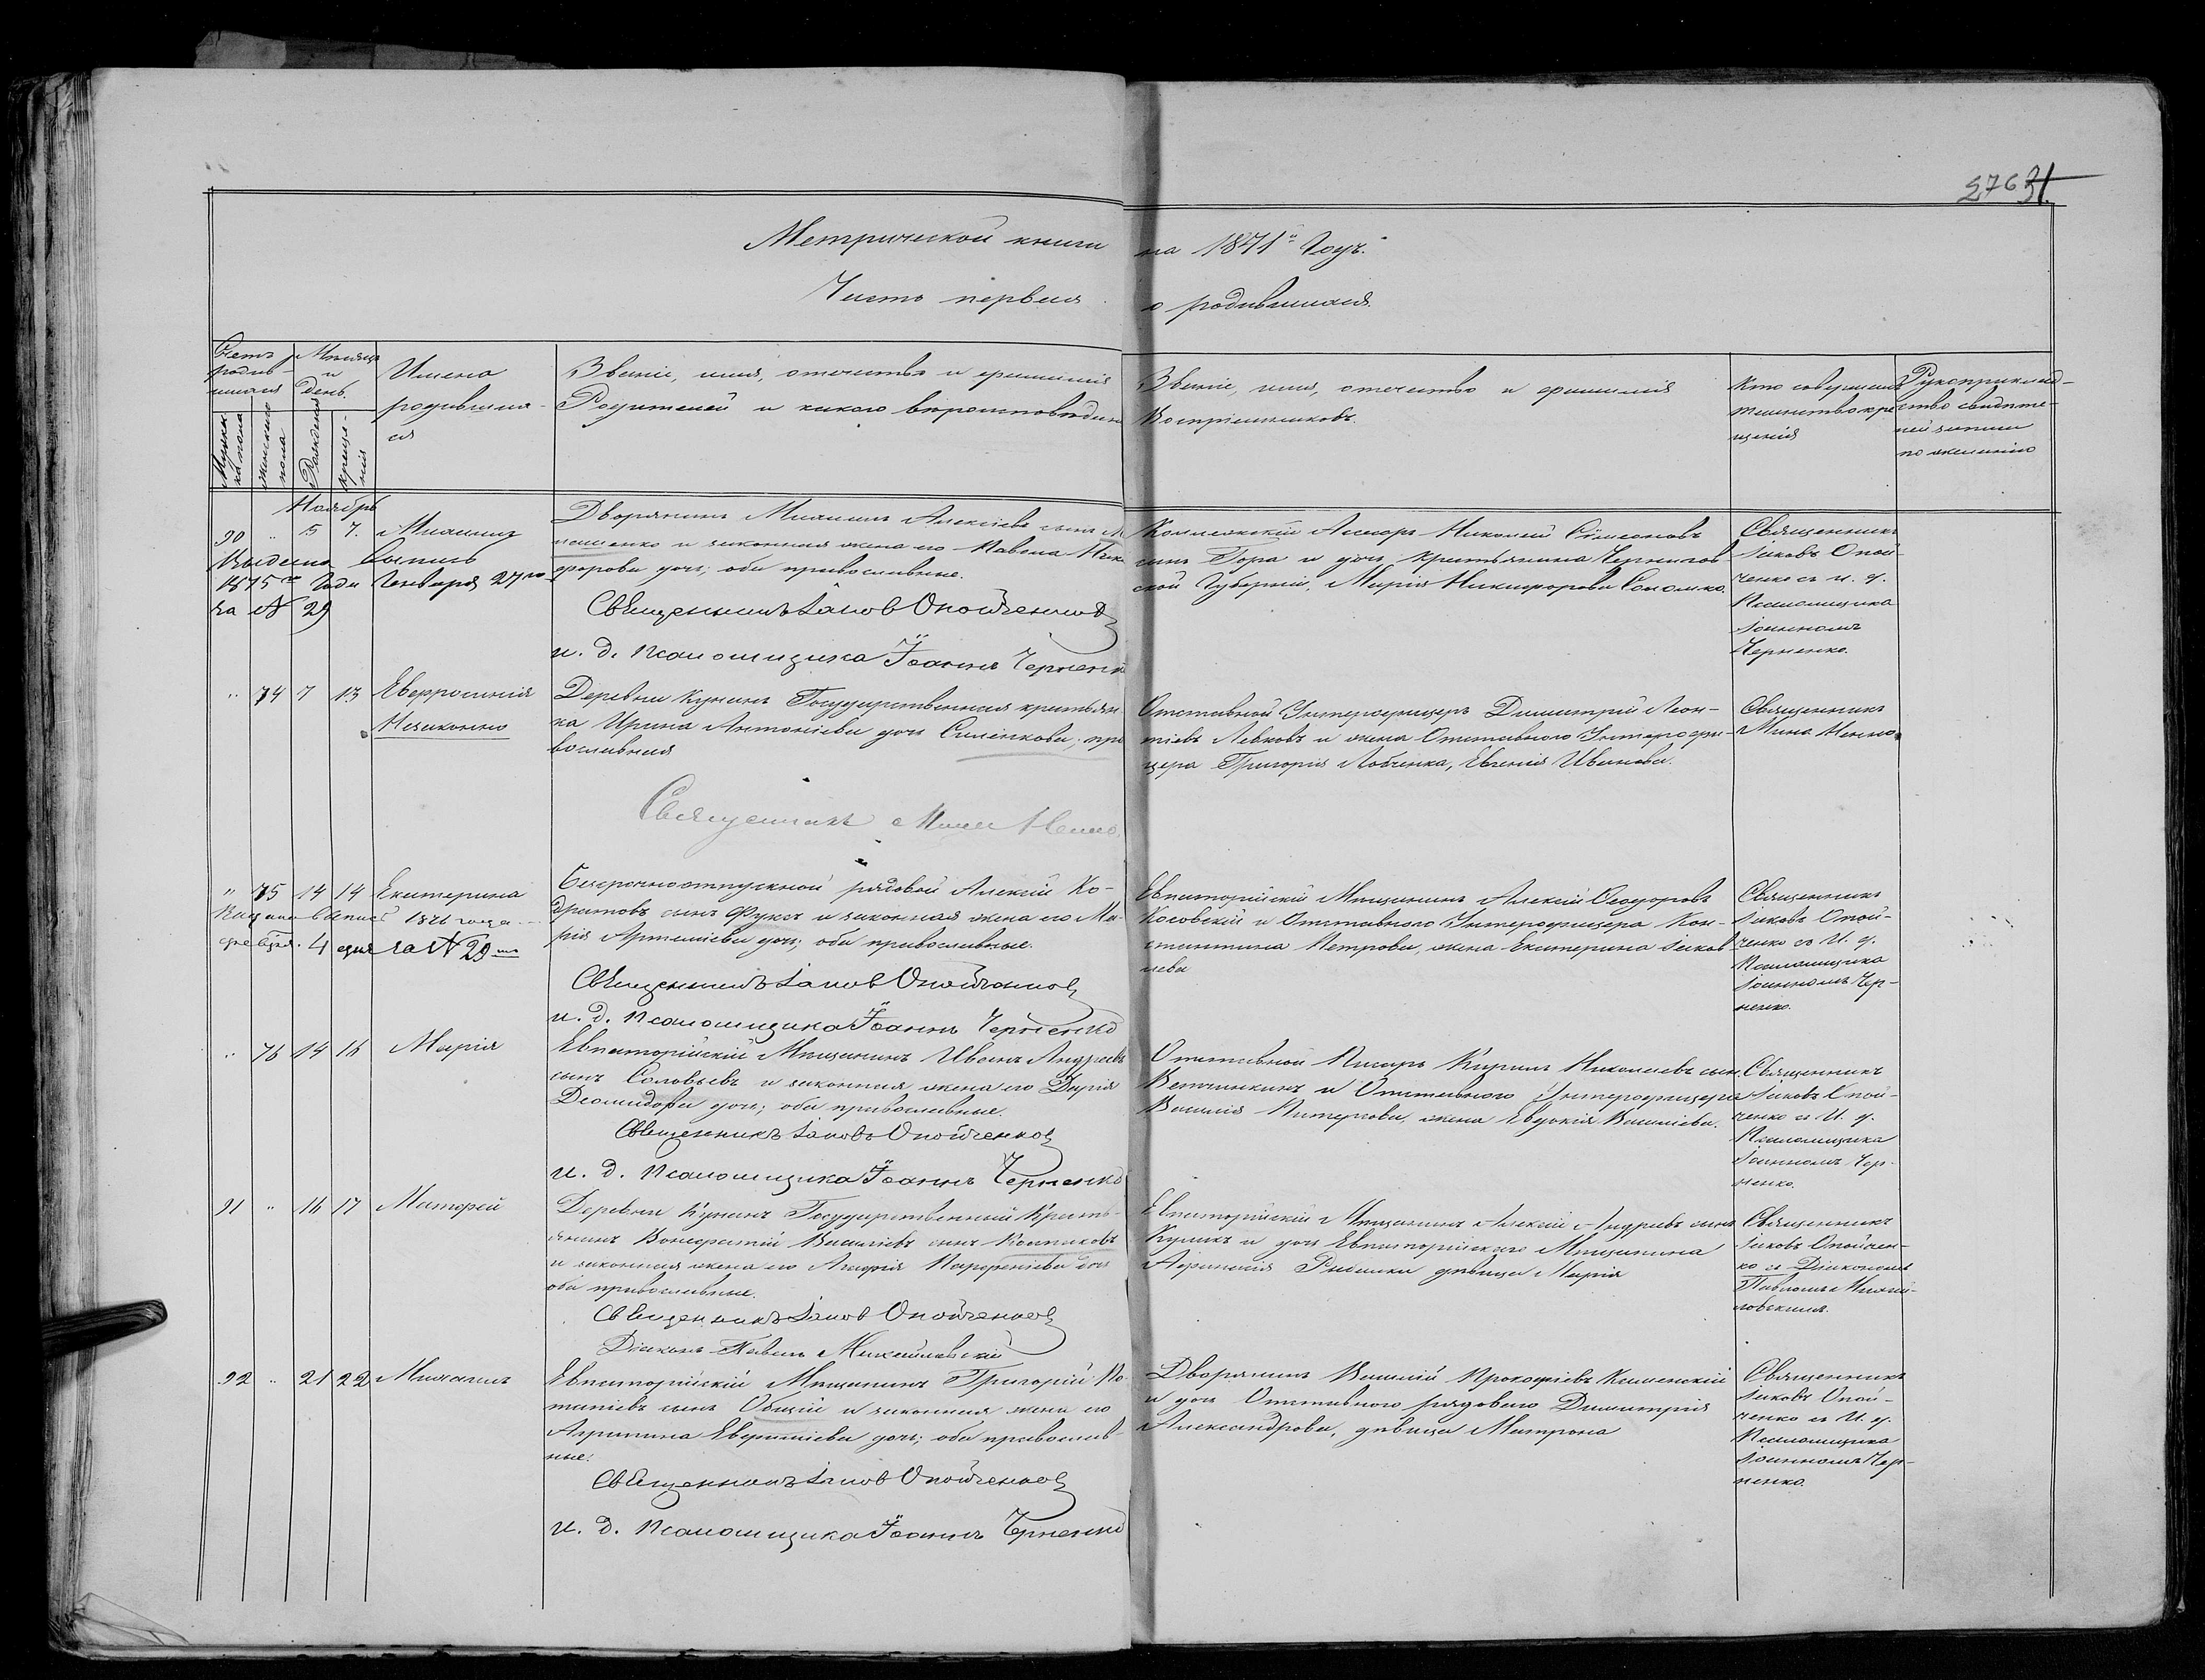 276 31.
Метрической книги на 1871й Годъ.
Часть первая о родившихся.
Счетъ родив-
шихся
Мѣсяцъ
и
День.
Мужск
ка пола
женскаго
пола
Рожденія
Креще-
нія
Имена
родивших-
ся
Званіе, имя, отчество и фамилія
Родителей и какого вѣроисповѣдан
Званіе, имя, отчество и фамилія
Воспріемниковъ.
Кто совершалъ
таинство кре
щенія
Рукоприклад-
ство свидѣте-
лей записи
по желанію
Ноябрь
90 " 5 7. Михаилъ
Выдана Выпись
1875го Года Генваря 27го
за № 29
Дворянинъ Михаилъ Алексіевъ сынъ
и законная жена его Павела Ники
форова дочь; оба православные.
Священникъ Іаковъ Опойченко
и. д. псаломщика Іоаннъ Черненк
Коллежскій Асесоръ Николай Симеоновъ
сынъ Гора и дочь крестьянина Чернигов
ской Губерніи, Марія Никифорова Соломко.
Священникъ
Іаковъ Опой-
ченко съ и. д.
Псаломщика
Іоанномъ
Черненко.
" 74 7 13 Евфросинія
Незаконно
Деревни Кунанъ Государственная крестьян
ка Ирина Антоніева дочь Силенкова; пра
вославная
Священникъ Мина Ненно
Отставной Унтерофицеръ Димитрій Леон-
тіевъ Левковъ и жена Отставного Унтерофи-
цера Григорія Лобченка, Евгенія Иванова.
Священникъ
Мина Ненно
" 75 14 14 Екатерина
Выдана Выпись 1876 года
4 дня за № 29
Безсрочноотпускной рядовой Алексій Ко-
дратовъ сынъ Фуксъ и законная жена его Ма-
рія Артеміева дочь; оба православные.
Священникъ Іаковъ Опойченко
и. д. псаломщика Іоаннъ Черненко
Евпаторійскій Мѣщанинъ Алексій Ѳеодоровъ
Косовскій и Отставного Унтерофицера Кон-
стантина Петрова, жена Екатерина Іаков
лева
Священникъ
Іаковъ Опой-
ченко съ И. д.
Псаломщика
Іоанномъ Чер-
ненко.
" 76 14 16 Марія
Евпаторійскій Мѣщанинъ Иванъ Андреевъ
сынъ Соловьевъ и законная жена его Дарія
Деомидова дочь; оба православные.
Священникъ Іаковъ Опойченко
и. д. псаломщика Іоаннъ Черненко
Отставной Писарь Кирилъ Николаевъ сын.
Ветчинкинъ и Отставного Унтерофицера
Василія Питергова, жена Евдокія Василіева.
Священникъ
Іаковъ Опой-
ченко съ И. д.
Псаломщика
Іоанномъ Чер-
ненко.
91 " 16 17 Матфей
Деревни Кунанъ Государственный Кресть-
янинъ Вонифатій Василіевъ сынъ Колпаковъ
и законная жена его Агафія Парфеніева дочь
оба православные.
Священникъ Іаковъ Опойченко
Діаконъ Павелъ Михайловскій
Евпаторійскій Мѣщанинъ Алексій Андреевъ сынъ
Куликъ и дочь Евпаторійскаго Мѣщанина
Афанасія девица Марія
Священникъ
Іаковъ Опойчен-
ко съ Діакономъ
Павломъ Михай-
ловскимъ.
92 " 21 22 Михаилъ
Евпаторійскій Мѣщанинъ Григорій По-
тапіевъ сынъ Общій и законная жена его
Агрипина Евфиміева дочь; оба православ-
ные.
Священникъ Іаковъ Опойченко
и. д. псаломщика Іоаннъ Черненко
Дворянинъ Василій Прокофіевъ Каменскій
и дочь Отставного рядового Димитрія
Александрова, дѣвица Матрона
Священникъ
Іаковъ Опой-
ченко съ И. д.
Псаломщика
Іоанномъ Чер-
ненко.